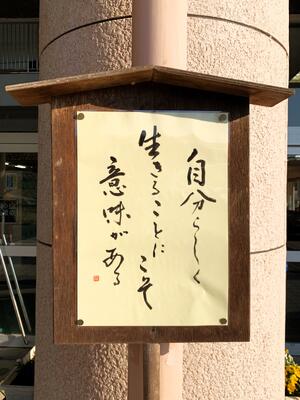 自分らしく
生きることにこそ
意味がある